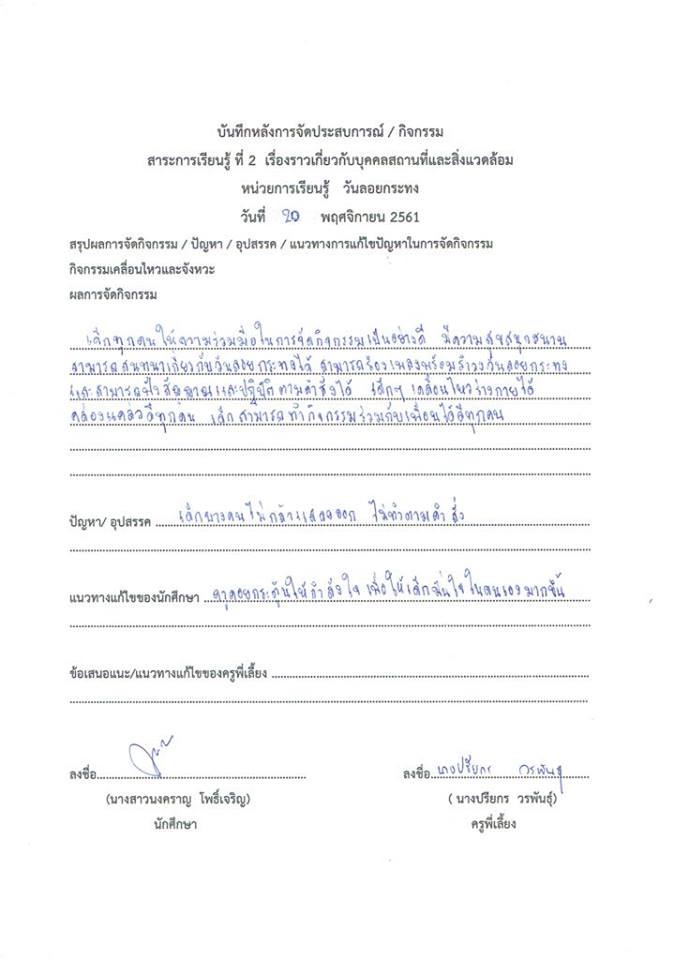 บันทึกหลังการจัดประสบการณ์ / กิจกรรม
สาระการเรียนรู้ ที่ 2 เรื่องราวเกี่ยวกับบุคคลสถานที่และสิ่งแวดล้อม
หน่วยการเรียนรู้ วันลอยกระทง
วันที่ 20 พฤศจิกายน 2561
สรุปผลการจัดกิจกรรม / ปัญหา / อุปสรรค / แนวทางการแก้ไขปัญหาในการจัดกิจกรรม
กิจกรรมเคลื่อนไหวและจังหวะ
ผลการจัดกิจกรรม
เด็กทุกคนให้ความร่วมมือในการจัดกิจกรรมเป็นอย่างดี มีความสุขสนุกสนาน
สามารถสนทนาเกี่ยวกับวันลอยกระทงได้ สามารถร้องเพลงพร้อมรำวงวันลอยกระทง
และสามารถฟังสัญญาณและปฏิบัติตามคำสั่งได้ เด็กๆ เคลื่อนไหวร่างกายได้
คล่องแคล่วดีทุกคน เด็กสามารถทำกิจกรรมร่วมกับเพื่อนได้ดีทุกคน
ปัญหา/ อุปสรรค เด็กบางคนไม่กล้าแสดงออก ไม่ทำตามคำสั่ง
แนวทางแก้ไขของนักศึกษา ครูคอยกระตุ้นให้กำลังใจ เพื่อให้เด็กมั่นใจในตนเองมากขึ้น
ข้อเสนอแนะ/แนวทางแก้ไขของครูพี่เลี้ยง
ลงชื่อ ลงชื่อ นางปรียกร วรพันธุ์
(นางสาวนงคราญ โพธิ์เจริญ) ( นางปรียกร วรพันธุ์)
นักศึกษา ครูพี่เลี้ยง